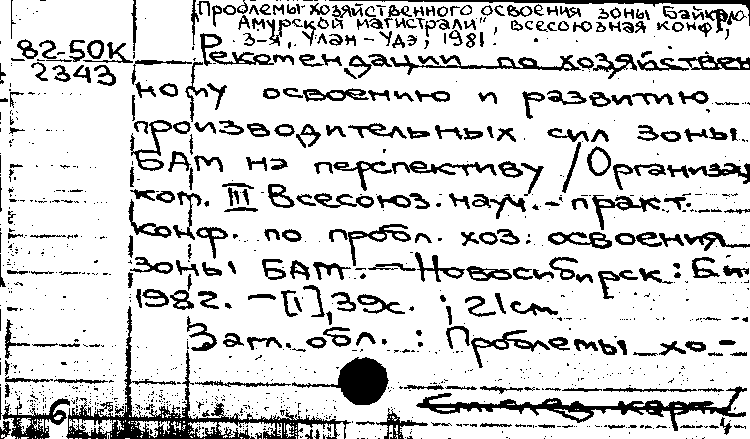 Проблемы хозяйственного освоения зоны Байкало-
Амурской магистрали", всесоюзная конф.,
3-я, Улан-Удэ, 1981.
82-50К
2343
Рекомендации по хозяйствен
ному освоению и развитию
производительных сил зоны
БАМ на перспективу / Организац
ком. III Всесоюз. науч.-практ.
конф. по пробл. хоз. освоения
зоны БАМ. - Новосибирск: Б.и
1982. - [1], 39с. ; 21см
Загл. обл. : Проблемы хо-
6